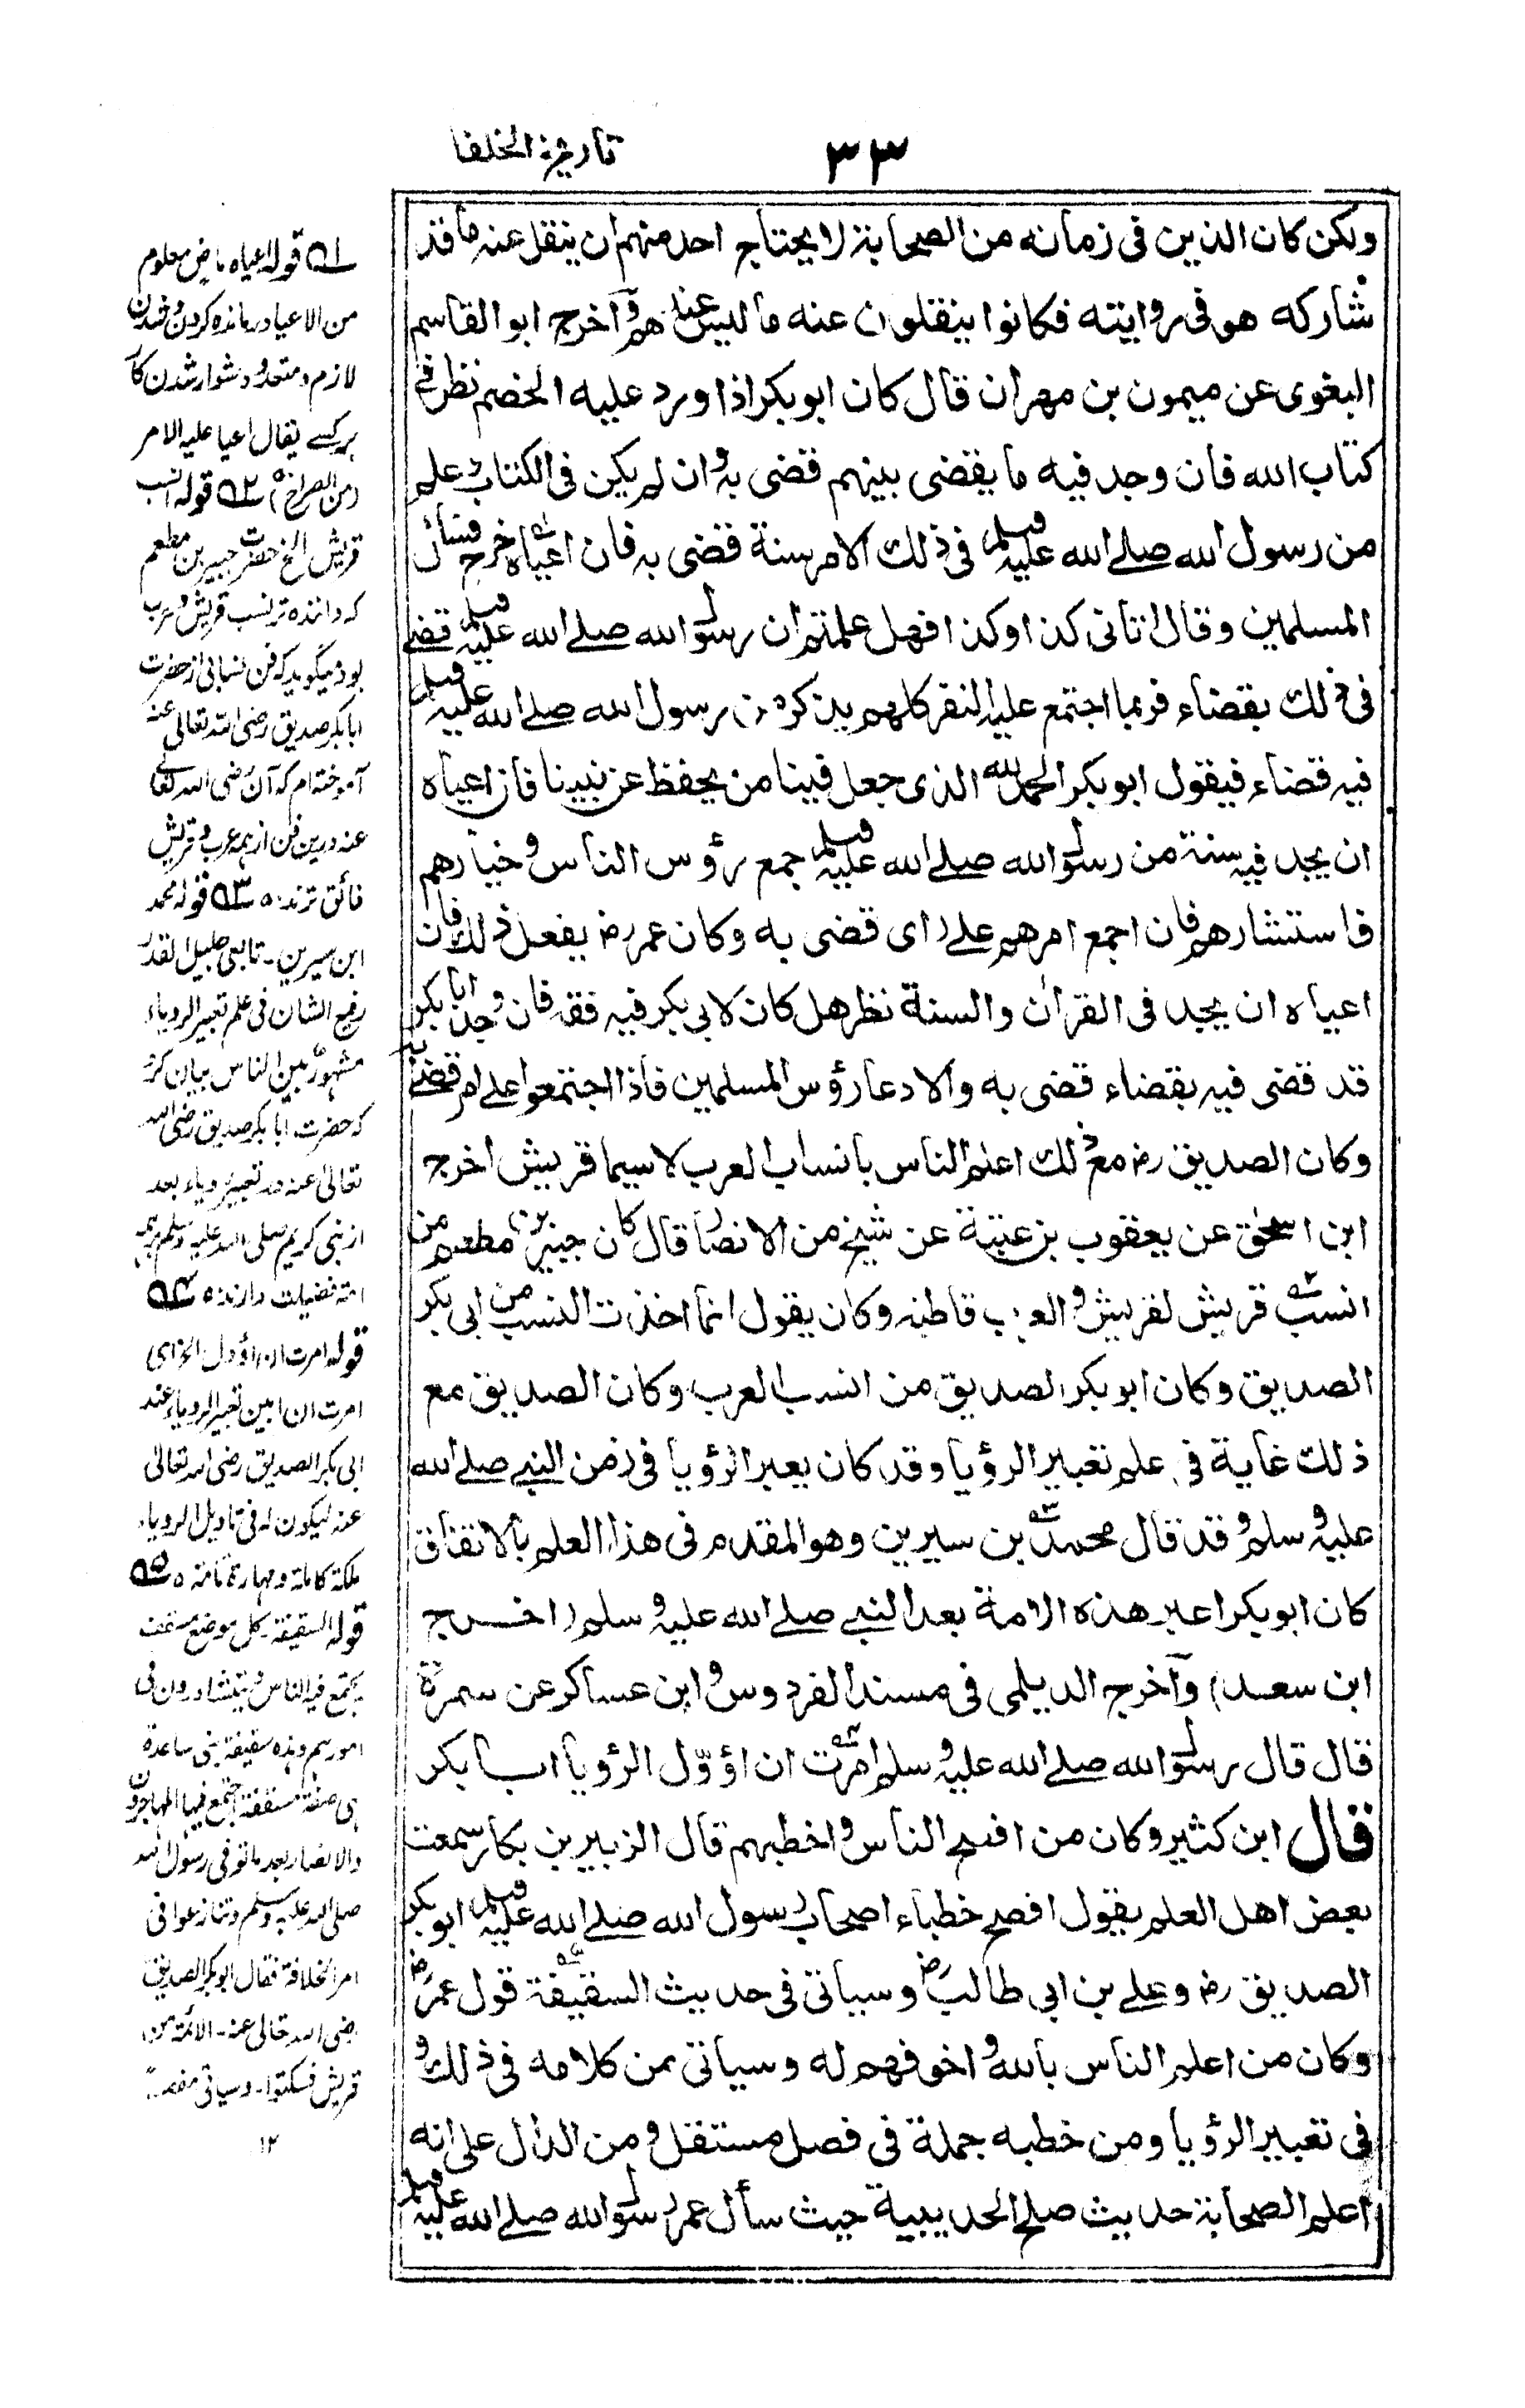 ٣٣
تاريخ الخلفا
ولكن كان الذين فى زمانه من الصحابة لا يحتاج احد منهم ان ينقل عنه ما قد
شاركه هو فى روايته فكانوا ينقلون عنه ما ليس عندهم وآخرج ابو القاسم
البغوى عن ميمون بن مهران قال كان ابو بكر اذا ورد عليه الخصم نظر فى
كتاب الله فان وجد فيه ما يقضى بينهم قضى به وان لم يكن فى الكتاب وعلم
من رسول الله صلے الله عليه وسلم فى ذلك الامر سنة قضى به فان اعياه خرج فسأل
المسلمين وقال اتانى كذا وكذا فهل علمتم ان رسول الله صلے الله عليه وسلم قضے
فى ذلك بقضاء فربما اجتمع عليه النفر كلهم يذكر من رسول الله صلے الله عليه وسلم
فيه قضاء فيقول ابو بكر الحمد لله الذى جعل فينا من يحفظ عن نبينا فان اعياه
ان يجد فيه سنة من رسول الله صلے الله عليه وسلم جمع رؤس الناس وخيارهم
فاستشارهم فان اجمع امرهم علے راى قضى به وكان عمر رض يفعل ذلك فان
اعياه ان يجد فى القرأن والسنة نظر هل كان لابى بكر فيه فقه فان وجد ابا بكر
قد قضى فيه بقضاء قضى به والا دعا رؤس المسلمين فاذا اجتمعوا علے امر قضے به
وكان الصديق رض مع ذلك اعلم الناس بانساب العرب لاسيما قريش اخرج
ابن اسحٰق عن يعقوب بن عتبة عن شيخ من الانصار قال كان جبير بن مطعم من
انسب قريش لقريش والعرب قاطبة وكان يقول انما اخذت النسب من ابى بكر
الصديق وكان ابو بكر الصديق من انسب العرب وكان الصديق مع
ذلك غاية فى علم تعبير الرؤيا وقد كان يعبر الرؤيا فى زمن النبے صلے الله
عليه وسلم وقد قال محمد بن سيرين وهو المقدم فى هذا العلم بالاتفاق
كان ابو بكر اعبر هذه الامة بعد النبے صلے الله عليه وسلم (اخرج
ابن سعد) وآخرج الديلمى فى مسند الفردوس وابن عساكر عن سمرة
قال قال رسول الله صلے الله عليه وسلم امرت ان اؤوّل الرؤيا ابا بكر
قال ابن كثير وكان من افصح الناس واخطبهم قال الزبير بن بكار سمعت
بعض اهل العلم يقول افصح خطباء اصحاب رسول الله صلے الله عليه وسلم ابو بكر
الصديق رض وعلے بن ابى طالب رض وسياتى فى حديث السقيفة قول عمر رض
وكان من اعلم الناس بالله واخوفهم له وسياتى من كلامه فى ذلك و
فى تعبير الرؤيا ومن خطبه جملة فى فصل مستقل ومن الدال على انه
اعلم الصحابة حديث صلح الحديبية حيث سأل عمر رسول الله صلے الله عليه وسلم
ا قوله اعياه ماض معلوم
من الاعياء درمانده كردن وشدن
لازم ومتعد و دشوار شدن كار
بركسے يقال اعيا عليه الامر
(من الصراح) ٢ قوله انسب
قريش الخ حضرت جبير بن مطعم
كه داننده تر نسب قريش وعرب
بود ميگويد كه فن نسابى از حضرت
ابا بكر صديق رضى الله تعالى عنه
آموخته ام كه آن رضى الله تعالے
عنه درين فن از همه عرب و قريش
فائق ترند ٣ قوله محمد
ابن سيرين - تابعى جليل القدر
رفيع الشان فى علم تعبير الروياء
مشهور بين الناس بيان كرد
كه حضرت ابا بكر صديق رضى الله
تعالىٰ عنه در تعبير روياء بعد
از نبى كريم صلى الله عليه وسلم برهمه
امة فضيلت دارند ٤
قوله امرت ان اؤول الخ اى
امرت ان ابين تعبير الروياء عند
ابى بكر الصديق رضى الله تعالى
عنه ليكون له فى تاويل الروياء
ملكة كاملة ومهارة تامة ٥
قوله السقيفة كل موضع مسقف
يجتمع فيه الناس ويتشاورون فى
امورهم وهذه سقيفة بنى ساعدة
هى صفة مسقفة اجتمع فيها المهاجرون
والانصار بعد ما توفى رسول الله
صلى الله عليه وسلم وتنازعوا فى
امر الخلافة فقال ابو بكر الصديق
رضى الله تعالى عنه - الائمة من
قريش فسكتوا - وسياتى مفصلا
١٢